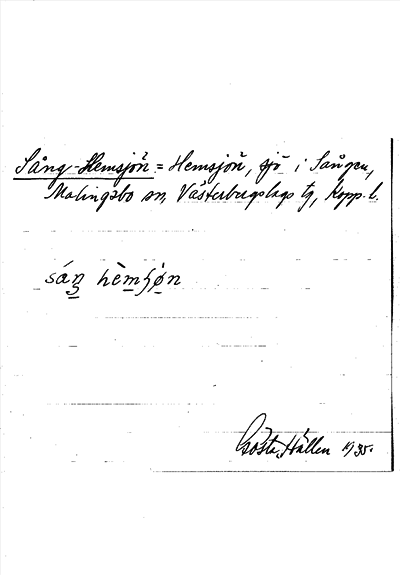 Sång-Hemsjön = Hemsjön, sjö i Sången,
Malingsbo sn, Västerbergslags tg, Kopp. l.
såŋ hèmʃøn
Gösta Hållen 1935.